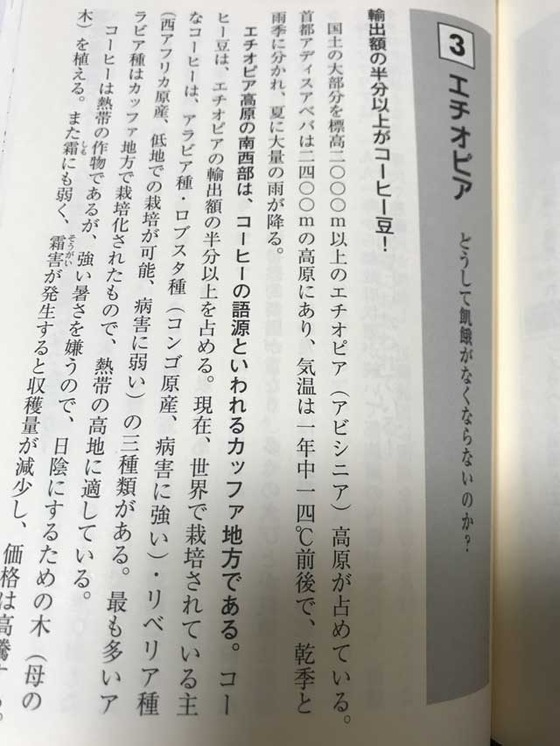 3 エチオピア どうして飢餓がなくならないのか?
輸出額の半分以上がコーヒー豆!
国土の大部分を標高二〇〇〇m以上のエチオピア(アビシニア)高原が占めている。
首都アディスアベバは二四〇〇mの高原にあり、気温は一年中一四℃前後で、乾季と
雨季に分かれ、夏に大量の雨が降る。
エチオピア高原の南西部は、コーヒーの語源といわれるカッファ地方である。コー
ヒー豆は、エチオピアの輸出額の半分以上を占める。現在、世界で栽培されている主
なコーヒーは、アラビア種・ロブスタ種(コンゴ原産、病害に強い)・リベリア種
(西アフリカ原産、低地での栽培が可能、病害に弱い)の三種類がある。最も多いア
ラビア種はカッファ地方で栽培化されたもので、熱帯の高地に適している。
コーヒーは熱帯の作物であるが、強い暑さを嫌うので、日陰にするための木(母の
木)を植える。また霜にも弱く、霜害が発生すると収穫量が減少し、価格は高騰する。
しも
そうがい